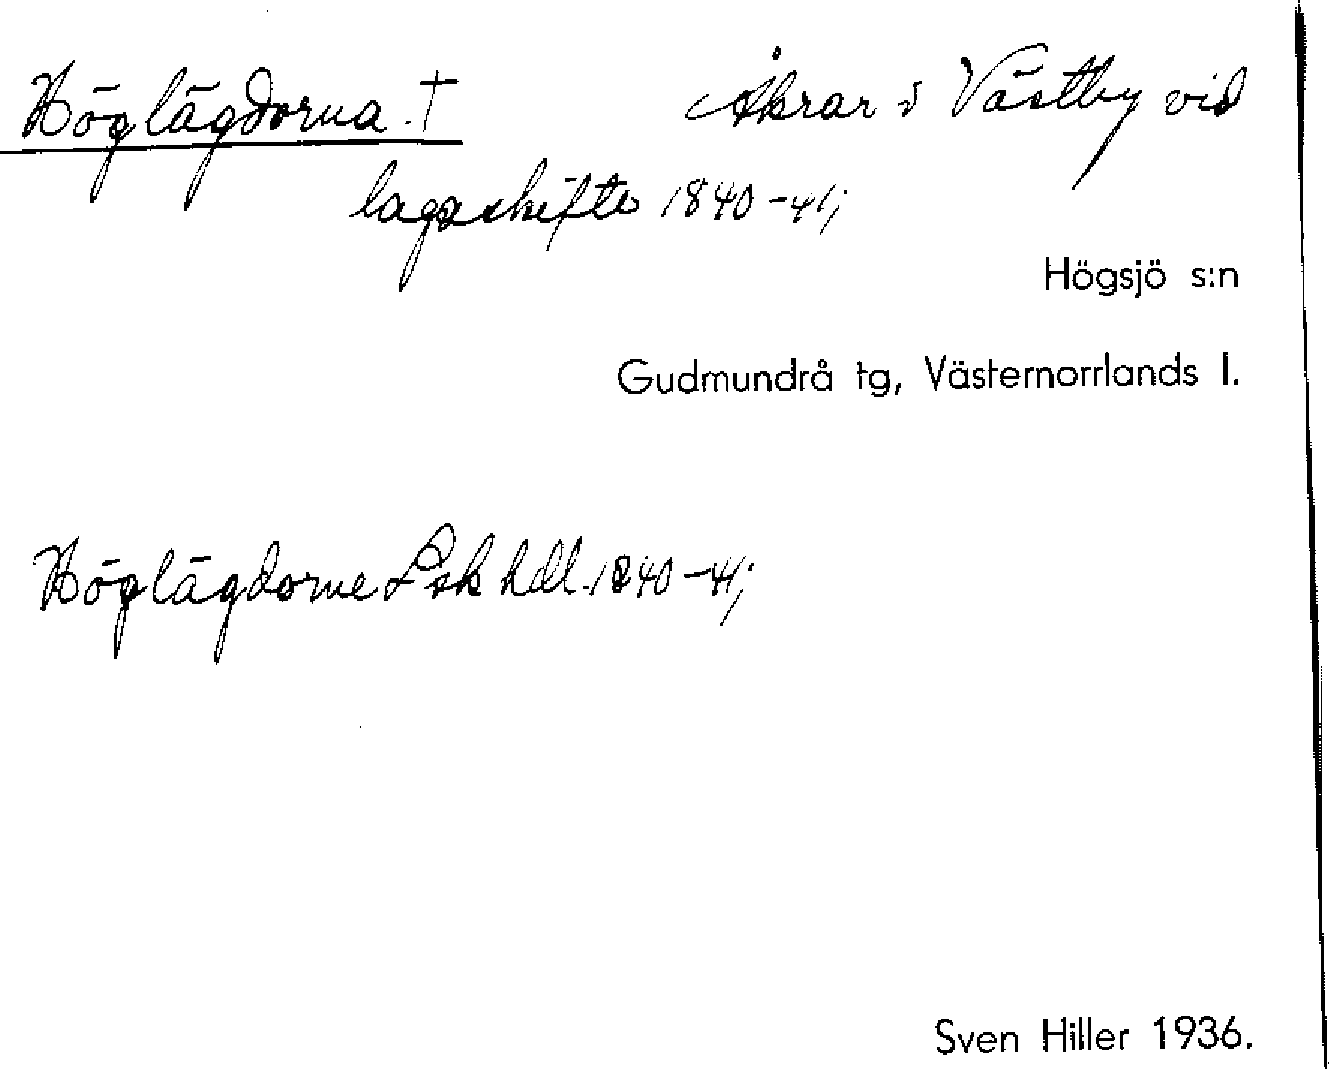 Höglägdorna. †
Åkrar i Västby vid
lagaskifte 1840-41;
Högsjö s:n
Gudmundrå tg, Västernorrlands l.
Höglägdorne Lsk hdl. 1840-41;
Sven Hiller 1936.